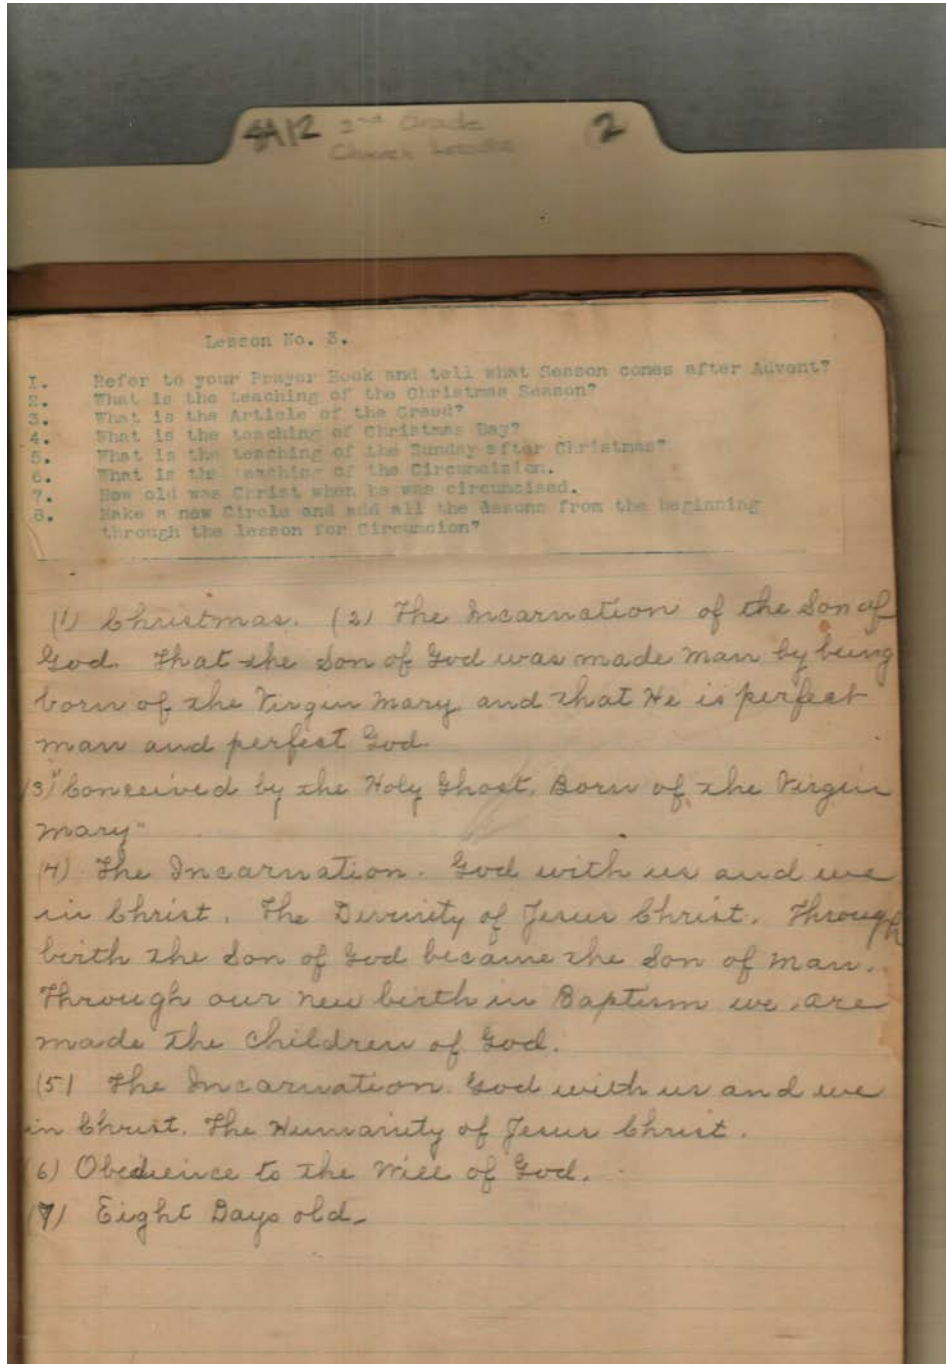 4A12 2nd Grade
Church Lessons
2
Lesson No. 3.
1. Refer to your Prayer Book and tell what Season comes after Advent?
2. What is the teaching of the Christmas Season?
3. What is the Article of the Creed?
4. What is the teaching of Christmas Day?
5. What is the teaching of the Sunday after Christmas?
6. What is the teaching of the Circumcision.
7. How old was Christ when he was circumcised.
8. Make a new Circle and add all the lessons from the beginning
through the lesson for Circumcion"
(1) Christmas. (2) The Incarnation of the Son of
God. That the Son of God was made Man by being
born of the Virgin Mary, and that He is perfect
man and perfect God.
(3) "Conceived by the Holy Ghost, Born of the Virgin
Mary"
(4) The Incarnation. God with us and we
in Christ. The Divinity of Jesus Christ. Through
birth the Son of God became the Son of Man.
Through our new birth in Baptism we are
made the Children of God.
(5) The Incarnation. God with us and we
in Christ. The Humanity of Jesus Christ.
(6) Obedience to the Will of God.
(7) Eight Days old.